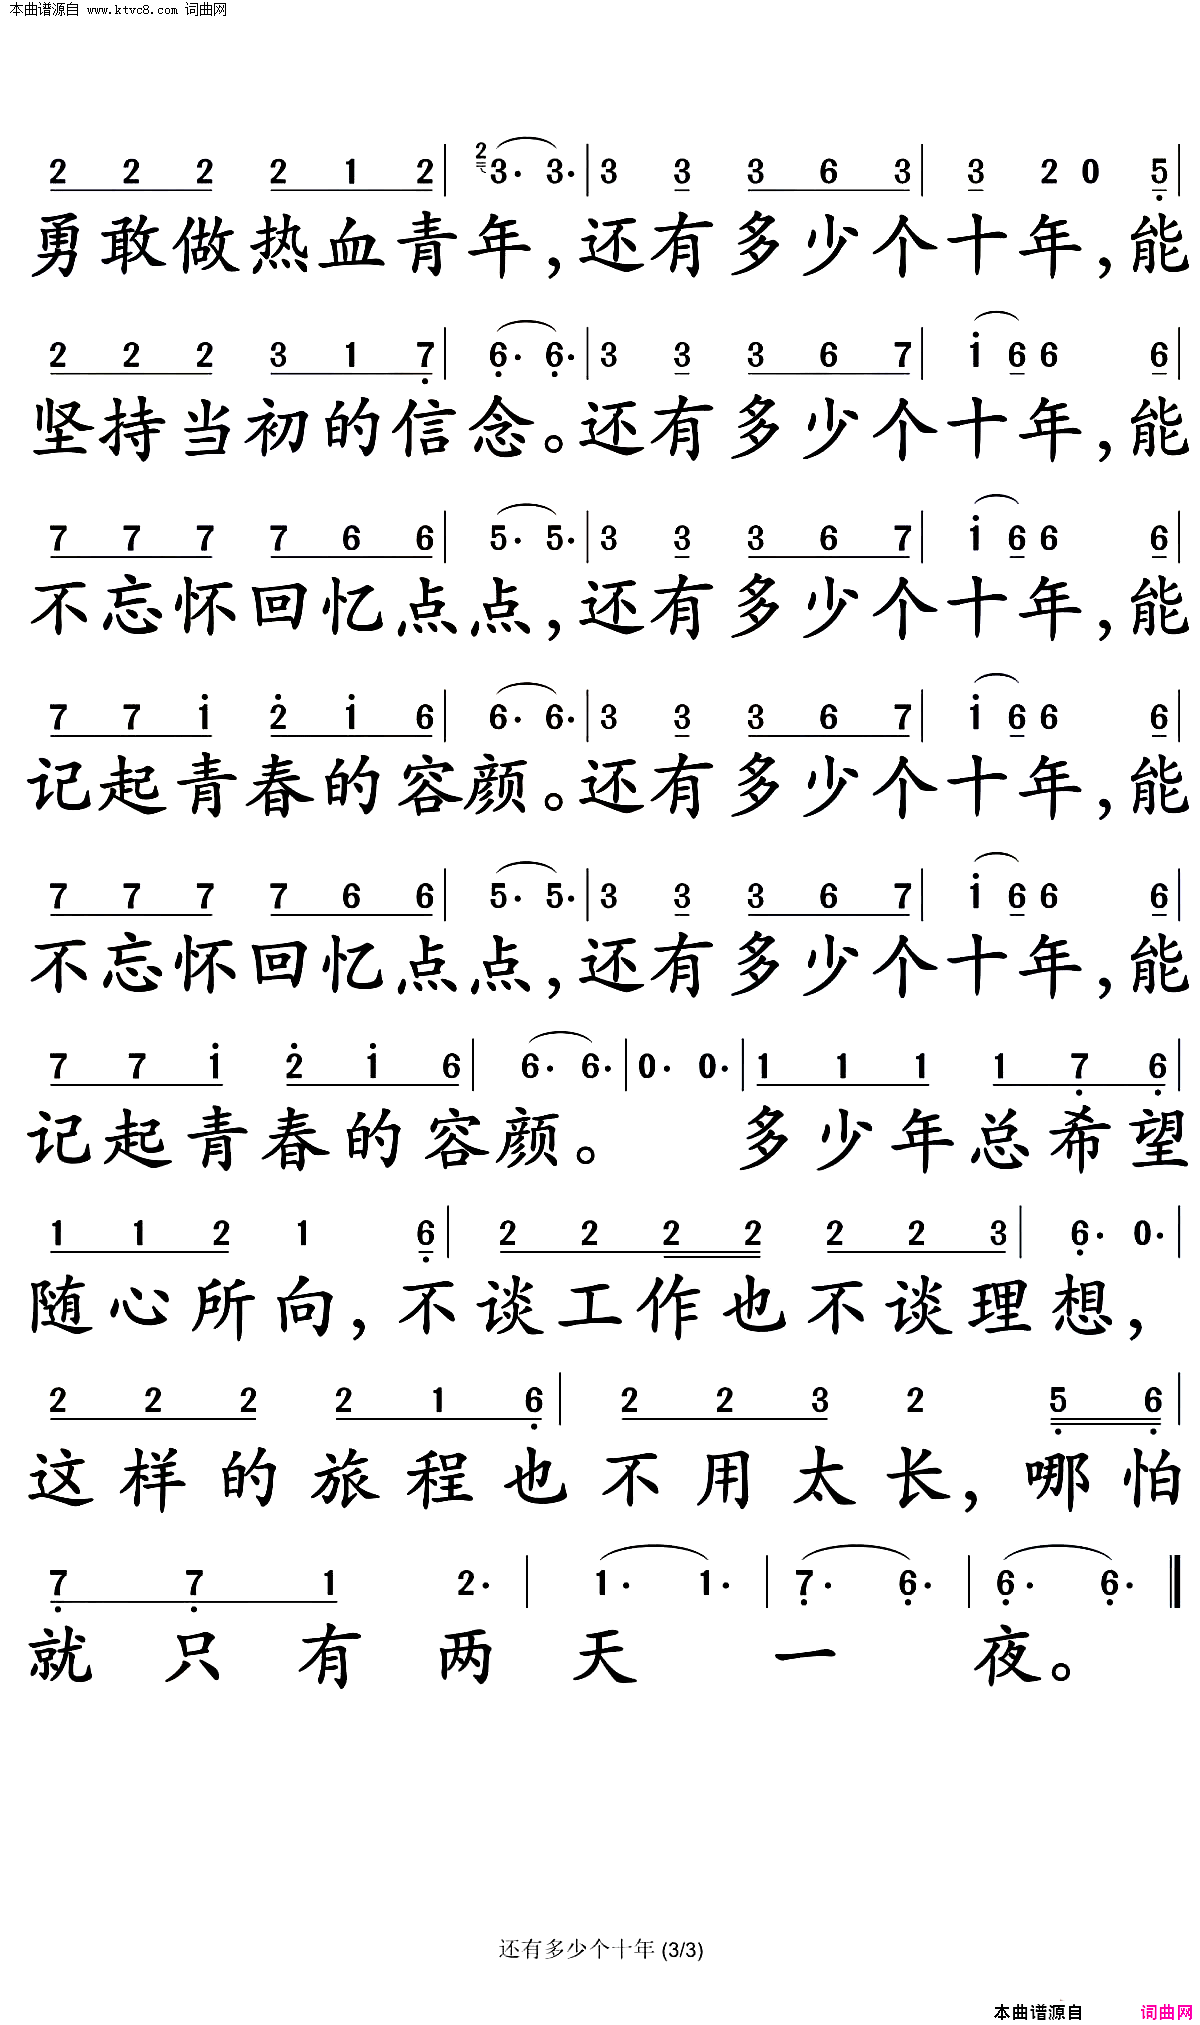 本曲谱源自 www.ktvc8.com 词曲网
2 2 2 2 1 2 | 2 3. 3. | 3 3 3 6 3 | 3 2 0 5 |
勇敢做热血青年,还有多少个十年,能
2 2 2 3 1 7 | 6. 6. | 3 3 3 6 7 | i 6 6 6 |
坚持当初的信念。还有多少个十年,能
7 7 7 7 6 6 | 5. 5. | 3 3 3 6 7 | i 6 6 6 |
不忘怀回忆点点,还有多少个十年,能
7 7 i 2 i 6 | 6. 6. | 3 3 3 6 7 | i 6 6 6 |
记起青春的容颜。还有多少个十年,能
7 7 7 7 6 6 | 5. 5. | 3 3 3 6 7 | i 6 6 6 |
不忘怀回忆点点,还有多少个十年,能
7 7 i 2 i 6 | 6. 6. | 0. 0. | 1 1 1 1 7 6 |
记起青春的容颜。 多少年总希望
1 1 2 1 6 | 2 2 2 2 2 2 3 | 6. 0. |
随心所向,不谈工作也不谈理想,
2 2 2 2 1 6 | 2 2 3 2 5 6 |
这样的旅程也不用太长,哪怕
7 7 1 2. | 1. 1. | 7. 6. | 6. 6. ‖
就只有两天一夜。
还有多少个十年 (3/3)
本曲谱源自 词曲网